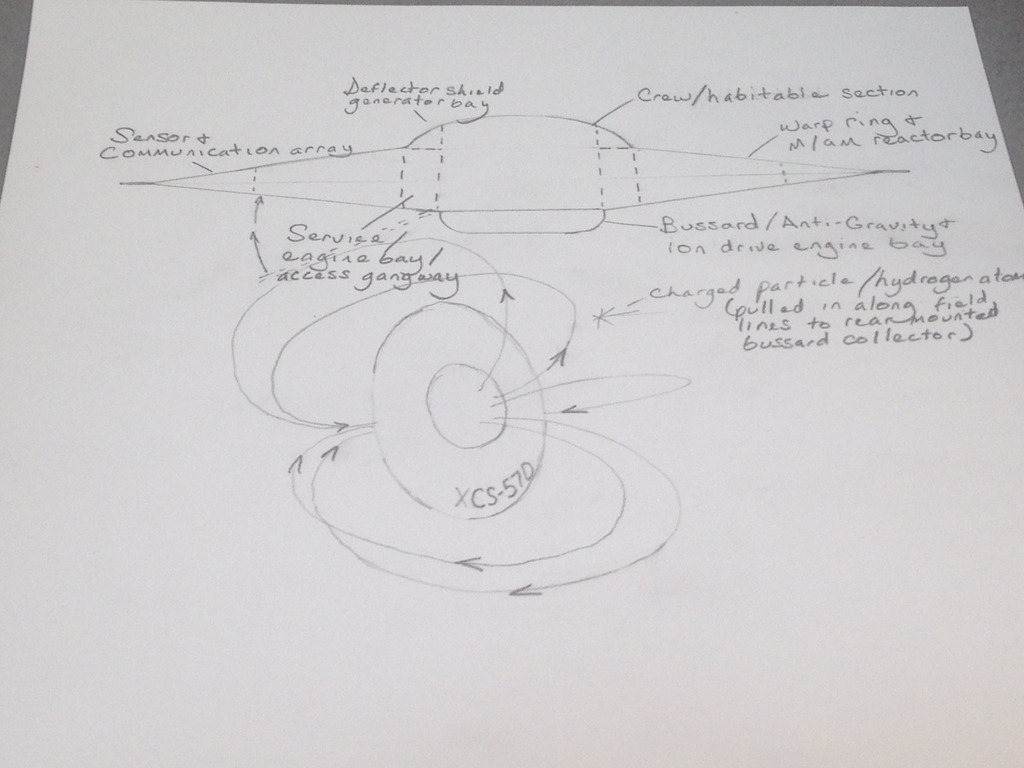 Deflector shield
generator bay
Crew/habitable section
Sensor &
Communication array
Warp ring &
M/AM reactor bay
Service/
engine bay/
access gangway
Bussard/Anti-Gravity &
Ion drive engine bay
Charged particle/hydrogen atom
(pulled in along field
lines to rear mounted
bussard collector)
XCS-570